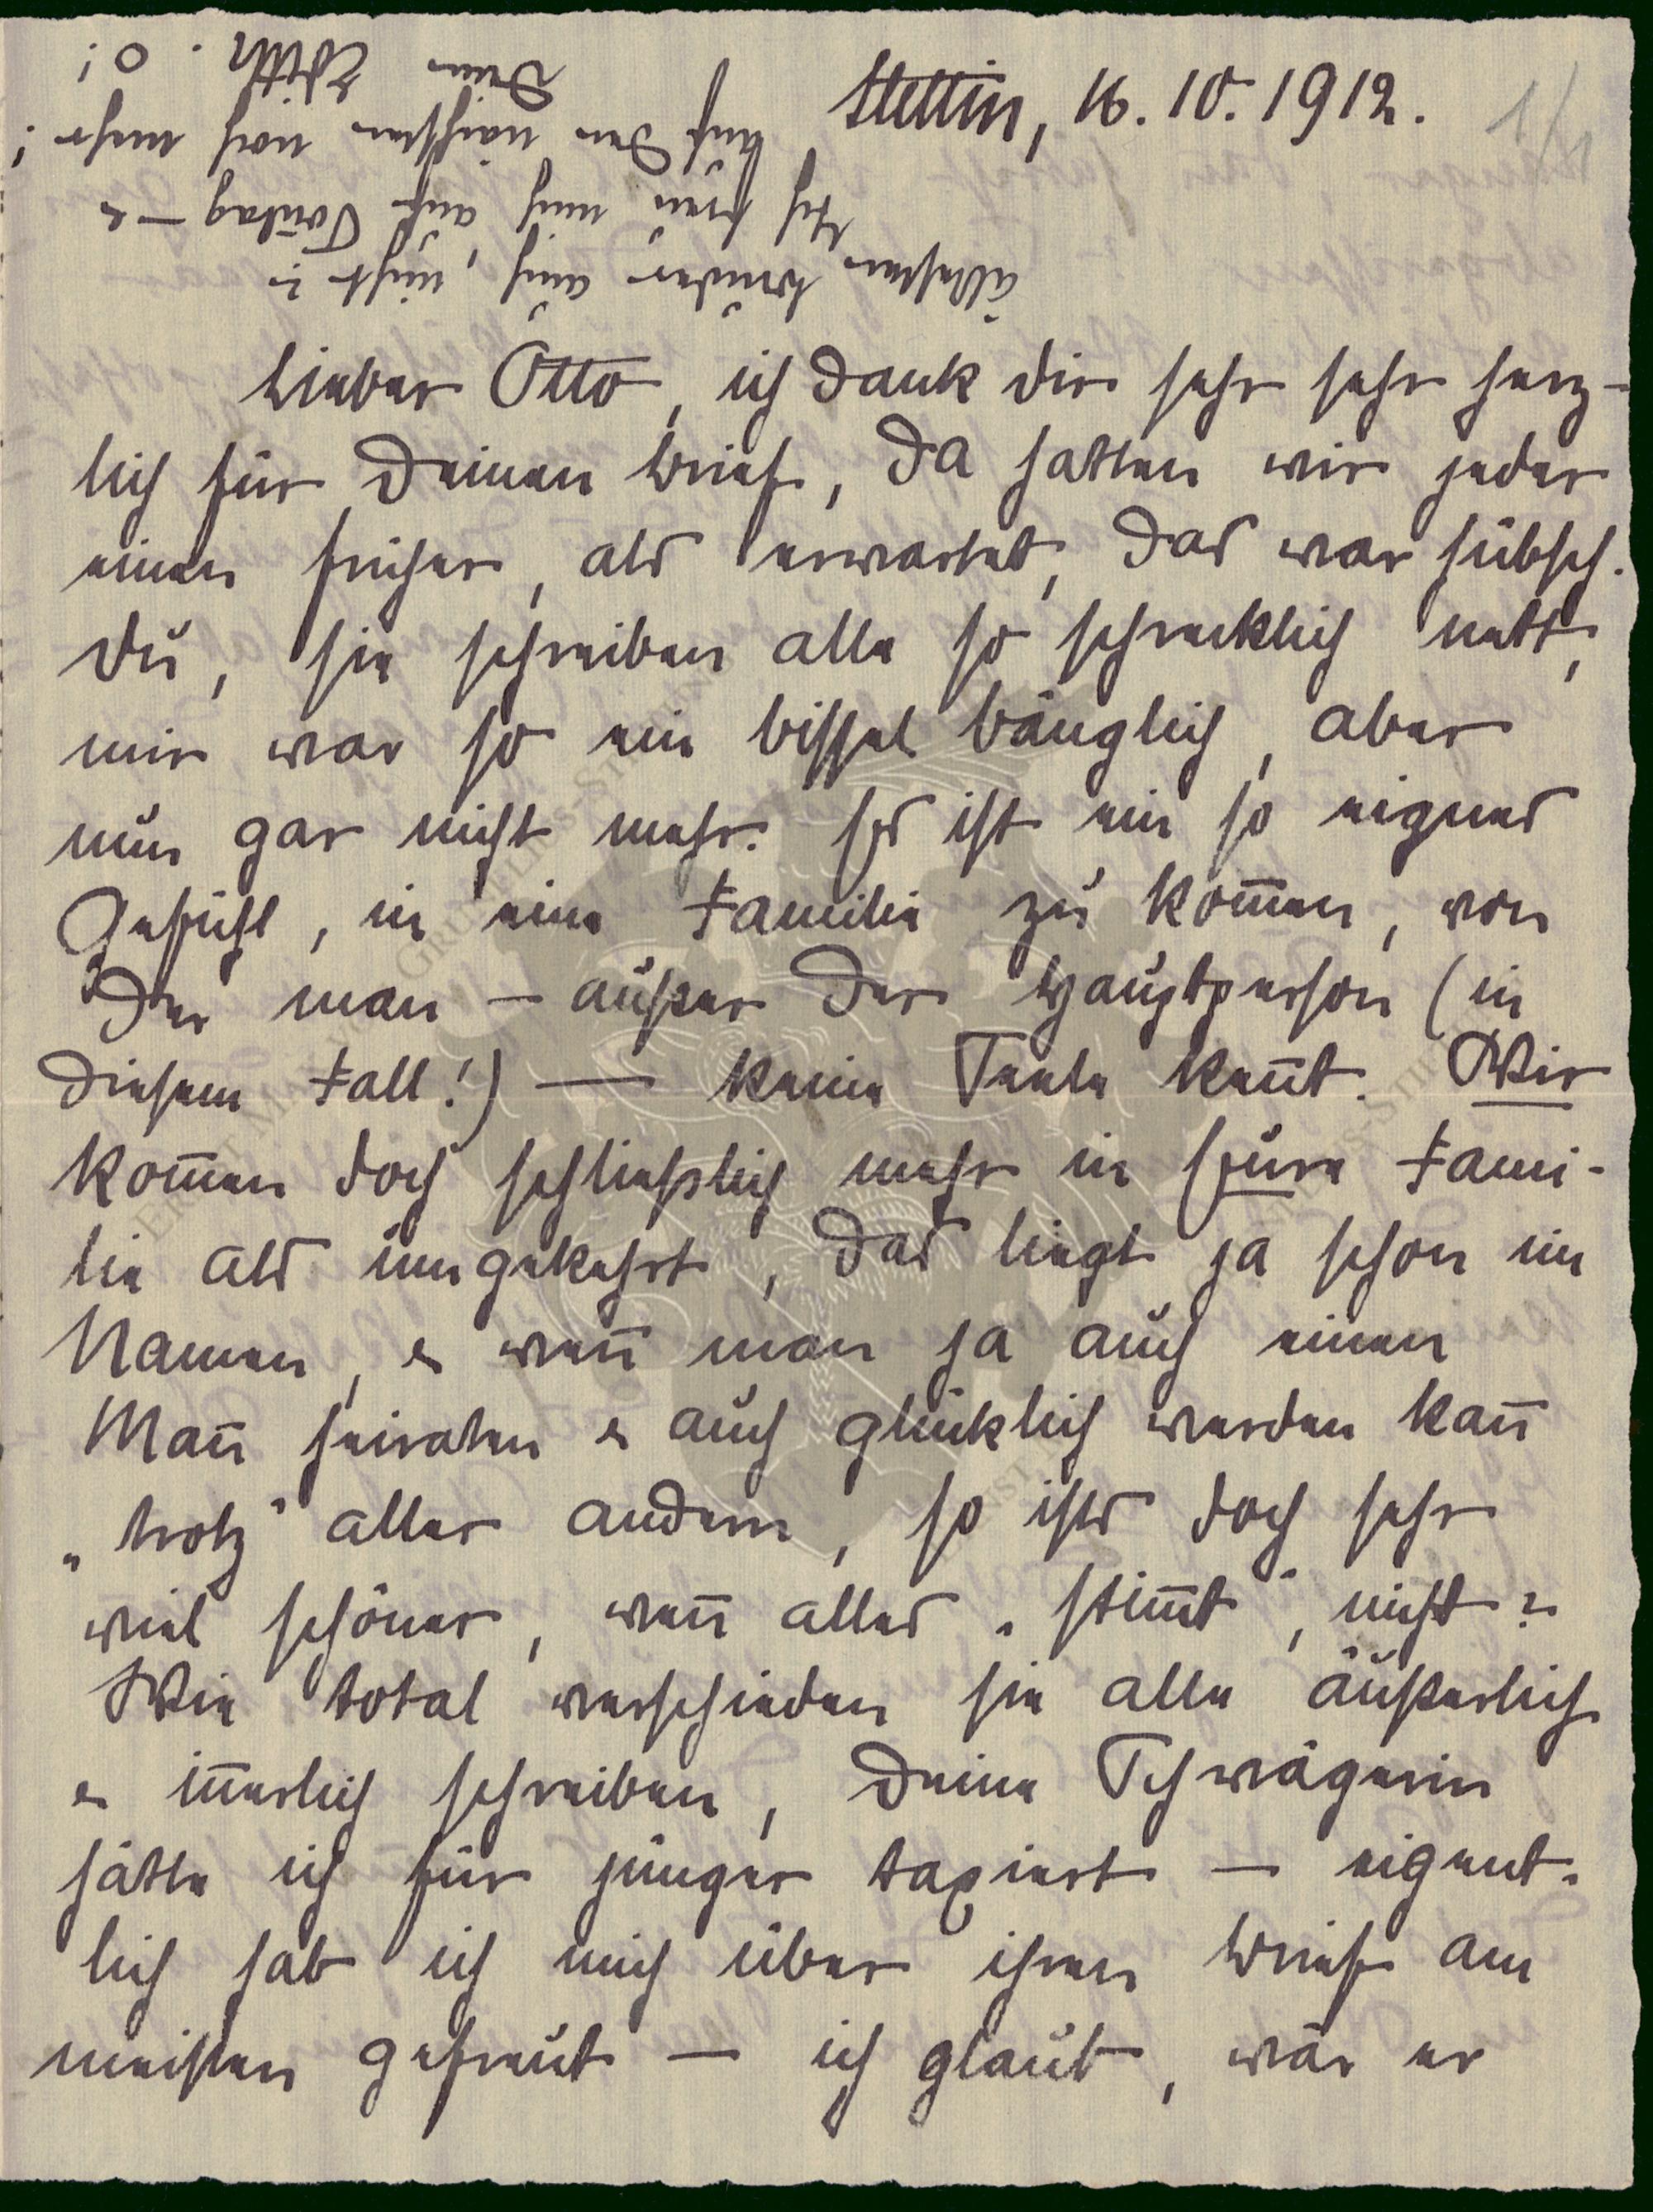 Stettin, 16.10.1912.
1/1
Lieber Otto, ich dank Dir sehr sehr herz-
lich für Deinen Brief, da hatten wir jeder
einen früher, als erwartet, das war hübsch.
Du, sie schreiben alle so schrecklich nett,
mir war so ein bissel bänglich, aber
nun gar nicht mehr. Es ist ein so eignes
Gefühl, in eine Familie zu kom̅en, von
der man – außer der Hauptperson (in
diesem Fall!) — keine Seele ken̅t. Wir
kom̅en doch schließlich mehr in Eure Fami-
lie als umgekehrt, das liegt ja schon im
Namen, & wen̅ man ja auch einen
Man̅ heiraten & auch glücklich werden kan̅
„trotz“ aller andern, so ists doch sehr
viel schöner, wen̅ alles „stim̅t“, nicht?
Wie total verschieden sie alle äußerlich
& in̅erlich schreiben, Deine Schwägerin
hätte ich für jünger taxiert – eigent-
lich hab ich mich über ihren Brief am
meisten gefreut – ich glaub, wär er
ältesten Bruder auch, nicht?
Ich freu mich auf Sontag – &
auf den nächsten noch mehr!
Dein Edith. O!